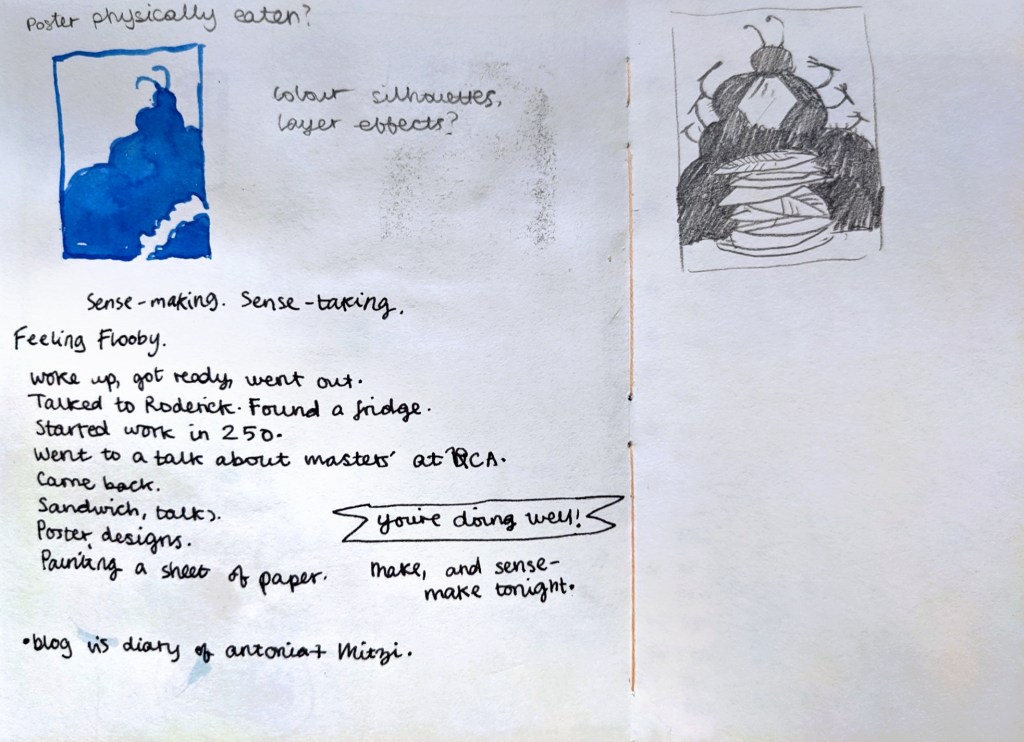 Poster physically eaten?
colour silhouettes,
layer effects?
Sense-making. Sense-taking.
Feeling Flooby.
woke up, got ready, went out.
Talked to Roderick. Found a fridge.
Started work in 250.
went to a talk about masters' at RCA.
Came back.
Sandwich, talks.
Poster designs.
Painting a sheet of paper.
you're doing well!
make, and sense-
make tonight.
•blog vis diary of antonia + Mitzi.